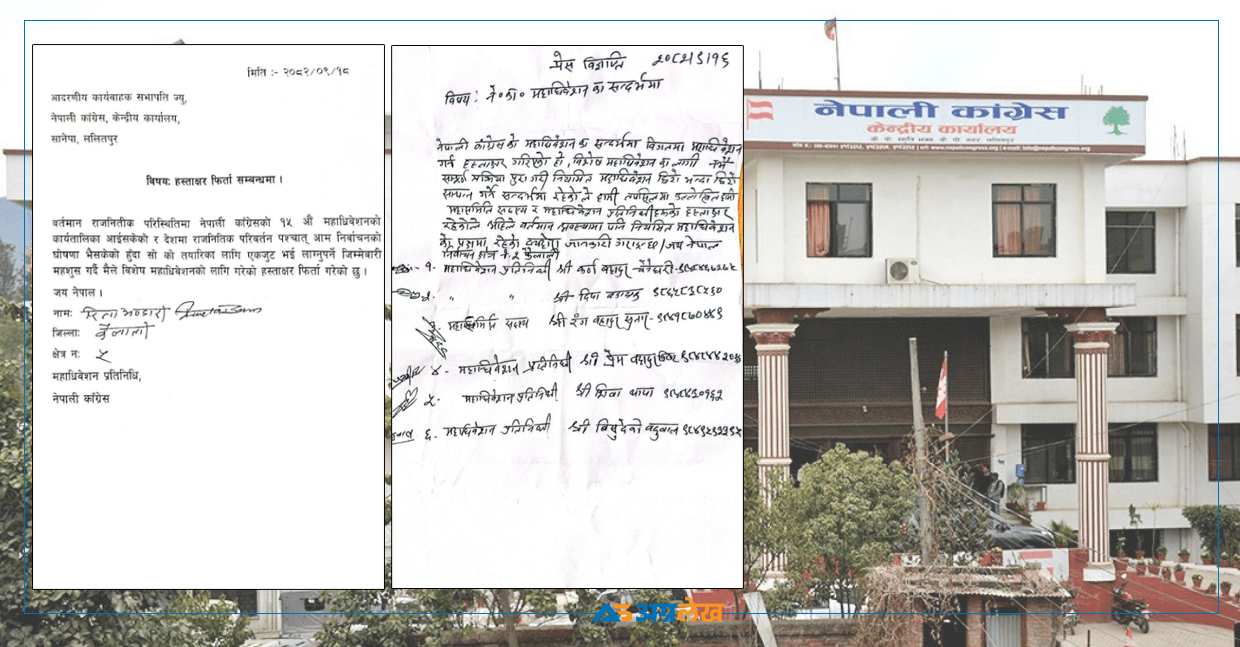 मिति :- २०८२/०९/१८
आदरणीय कार्यबाहक सभापति ज्यू,
नेपाली कांग्रेस, केन्द्रीय कार्यालय,
सानेपा, ललितपुर
विषय: हस्ताक्षर फिर्ता सम्बन्धमा ।
वर्तमान राजनितीक परिस्थितिमा नेपाली कांग्रेसको १५ औं महाधिबेशनको
कार्यतालिका आईसकेको र देशमा राजनितिक परिवर्तन पश्चात् आम निर्बाचनको
घोषणा भैसकेको हुँदा सो को तयारिका लागि एकजुट भई लाग्नुपर्ने जिम्मेवारी
महशुस गर्दै मैले बिशेष महाधिबेशनको लागि गरेको हस्ताक्षर फिर्ता गरेको छु ।
जय नेपाल ।
नाम:
जिल्ला: कैलाली
क्षेत्र न: ५
महाधिबेशन प्रतिनिधि,
नेपाली कांग्रेस
प्रेस विज्ञप्ति २०८२/९/१६
विषय: ने०का० महाधिवेशनका सन्दर्भमा
नेपाली कांग्रेसको महाधिवेशनका सन्दर्भमा विगतमा महाधिवेशन
गर्न हस्ताक्षर गरिएको हो, विशेष महाधिवेशनका लागी
सम्पूर्ण प्रक्रिया पुरा गरी नियमित महाधिवेशन छिटो भन्दा छिटो
सम्पन्न गर्ने सन्दर्भमा रहेकोले हामी तपसिलमा उल्लेखित
महासमिति सदस्य र महाधिवेशन प्रतिनिधी हस्ताक्षर
रहेकोले अहिले वर्तमान अवस्थामा पनि नियमित महाधिवेशन
पक्षमा रहेको जानकारी गराउँछौ/जय नेपाल
निर्वाचन क्षेत्र नं. २ कैलाली
१. महाधिवेशन प्रतिनिधी श्री कर्ण बहादुर चौधरी
२. " " श्री दिपा
३. महासमिति सदस्य श्री रंग बहादुर
४- महाधिवेशन प्रतिनिधी श्री प्रेम बहादुर
५. महाधिवेशन प्रतिनिधी श्री शिवा थापा
६. महाधिवेशन प्रतिनिधी श्री
नेपाली कांग्रेस
केन्द्रीय कार्यालय
अग्रलेख